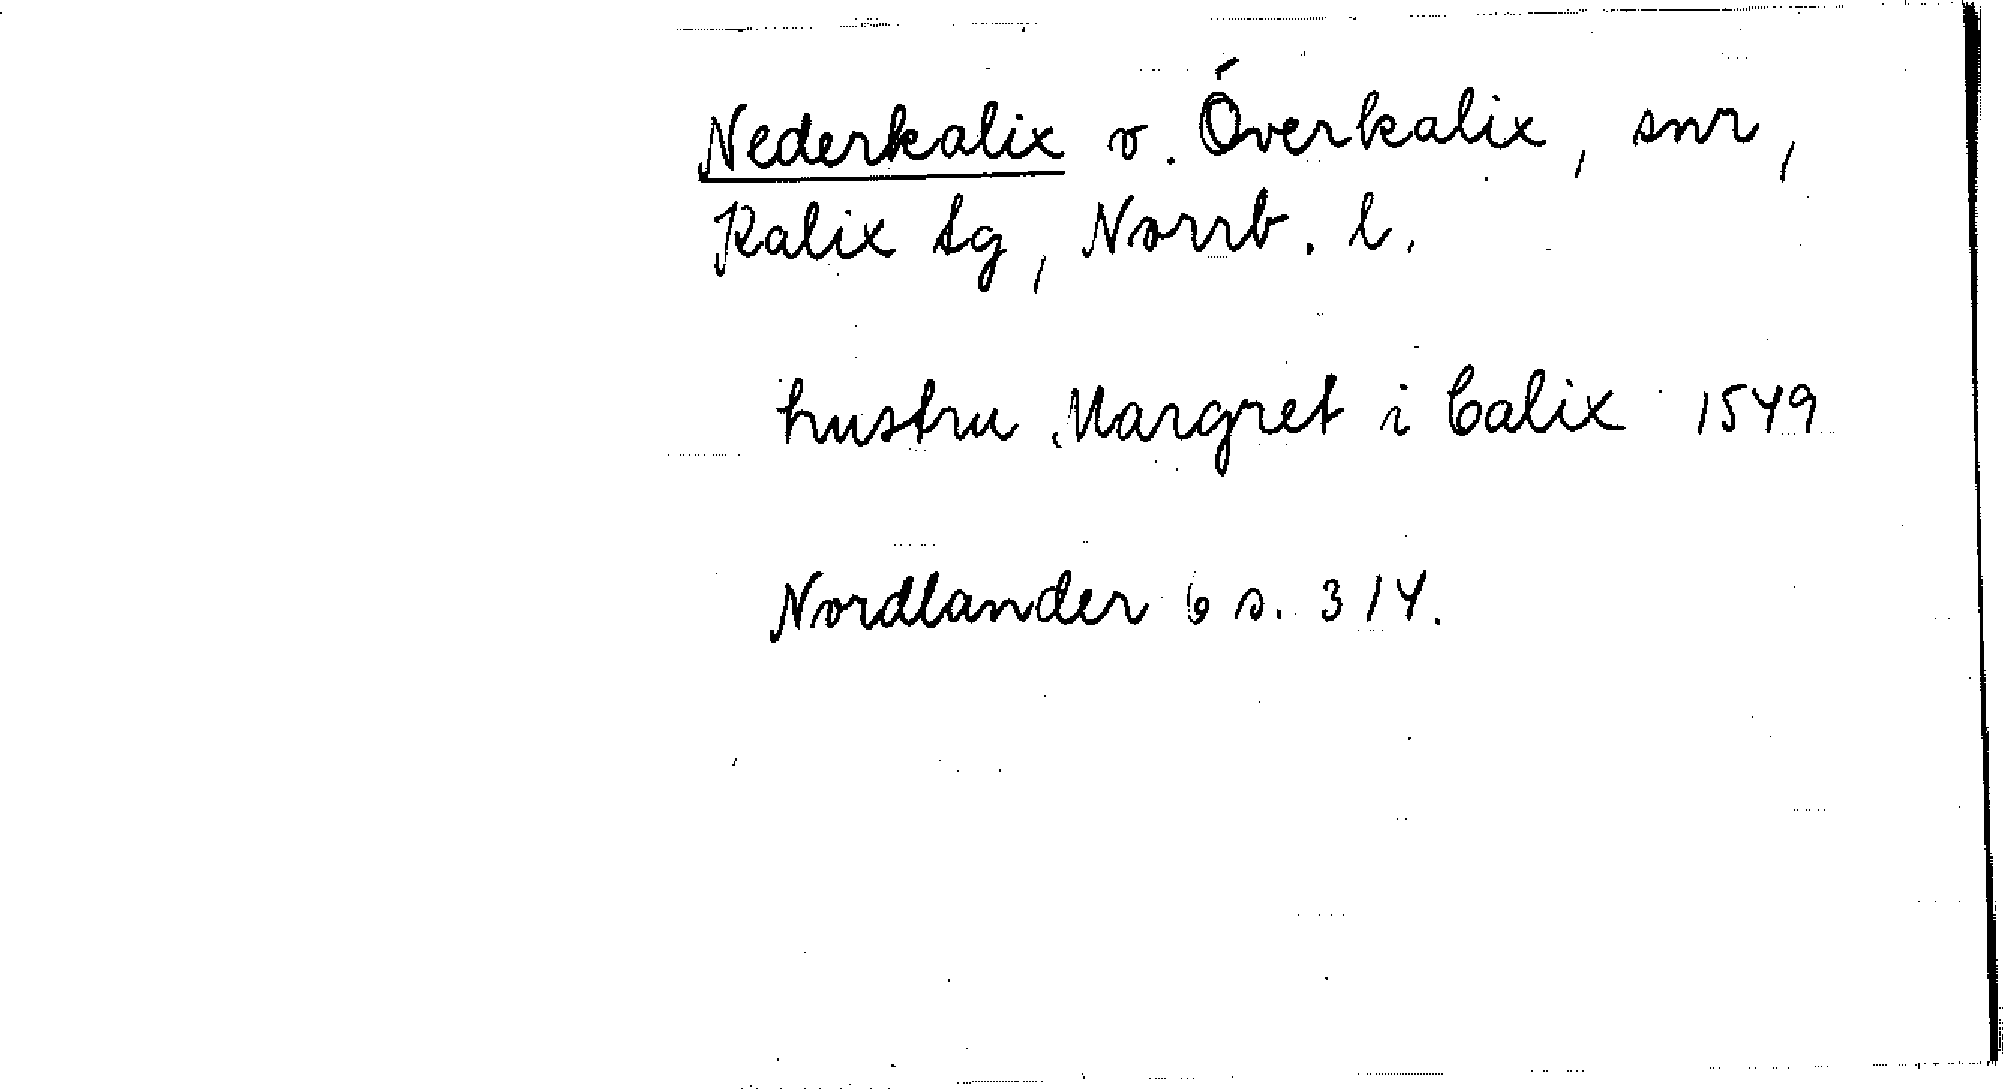 Nederkalix o. Överkalix, snr,
Kalix tg, Norrb. l.
hustru Margret i Calix 1549
Nordlander 6 s. 314.